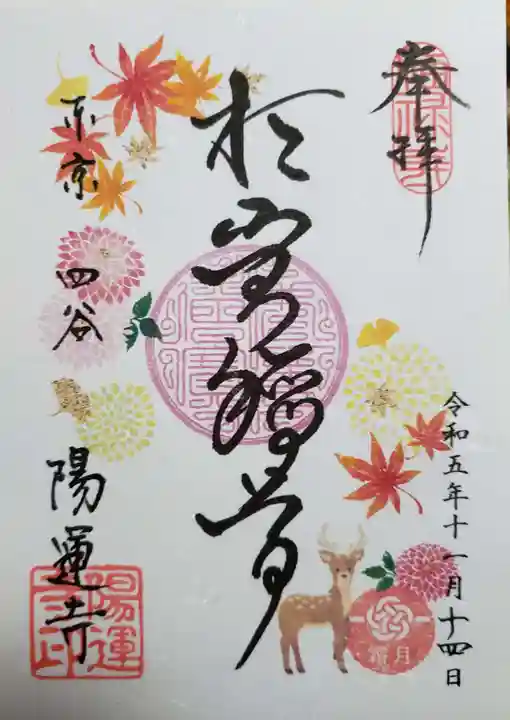 奉拝
令和五年十一月十四日
於岩
東京 四谷 陽運寺
霜月